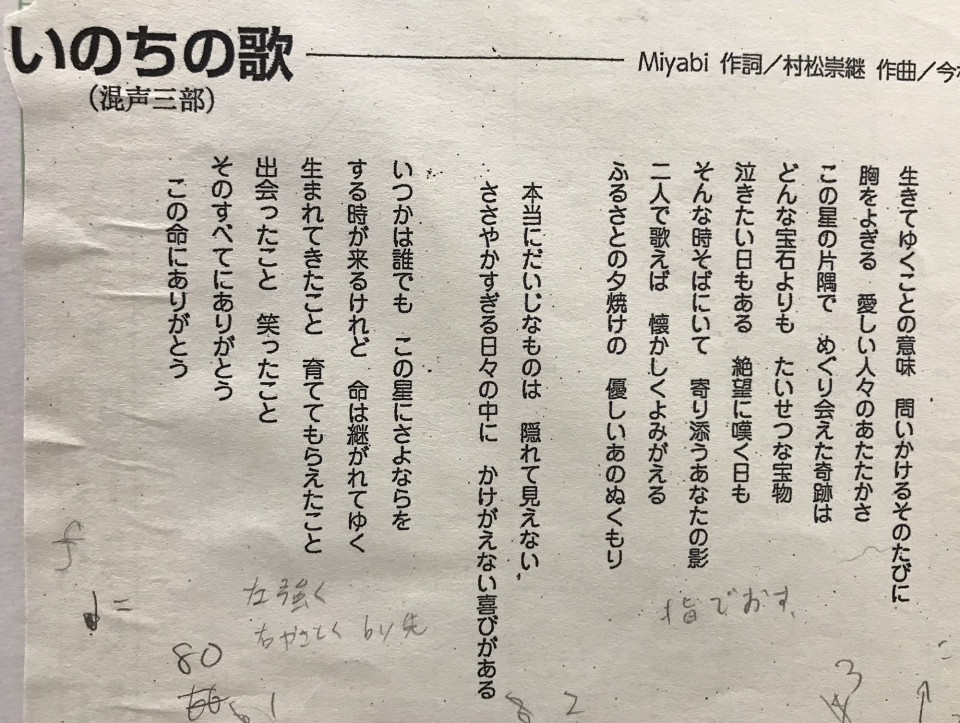 いのちの歌
（混声三部）
Miyabi 作詞／村松崇継 作曲／今
生きてゆくことの意味　問いかけるそのたびに
胸をよぎる　愛しい人々のあたたかさ
この星の片隅で　めぐり会えた奇跡は
どんな宝石よりも　たいせつな宝物
泣きたい日もある　絶望に嘆く日も
そんな時そばにいて　寄り添うあなたの影
二人で歌えば　懐かしくよみがえる
ふるさとの夕焼けの　優しいあのぬくもり
本当にだいじなものは　隠れて見えない
ささやかすぎる日々の中に　かけがえない喜びがある
いつかは誰でも　この星にさよならを
する時が来るけれど　命は継がれてゆく
生まれてきたこと　育ててもらえたこと
出会ったこと　笑ったこと
そのすべてにありがとう
この命にありがとう
指でおす
左強く
f
80
66
8 2
3